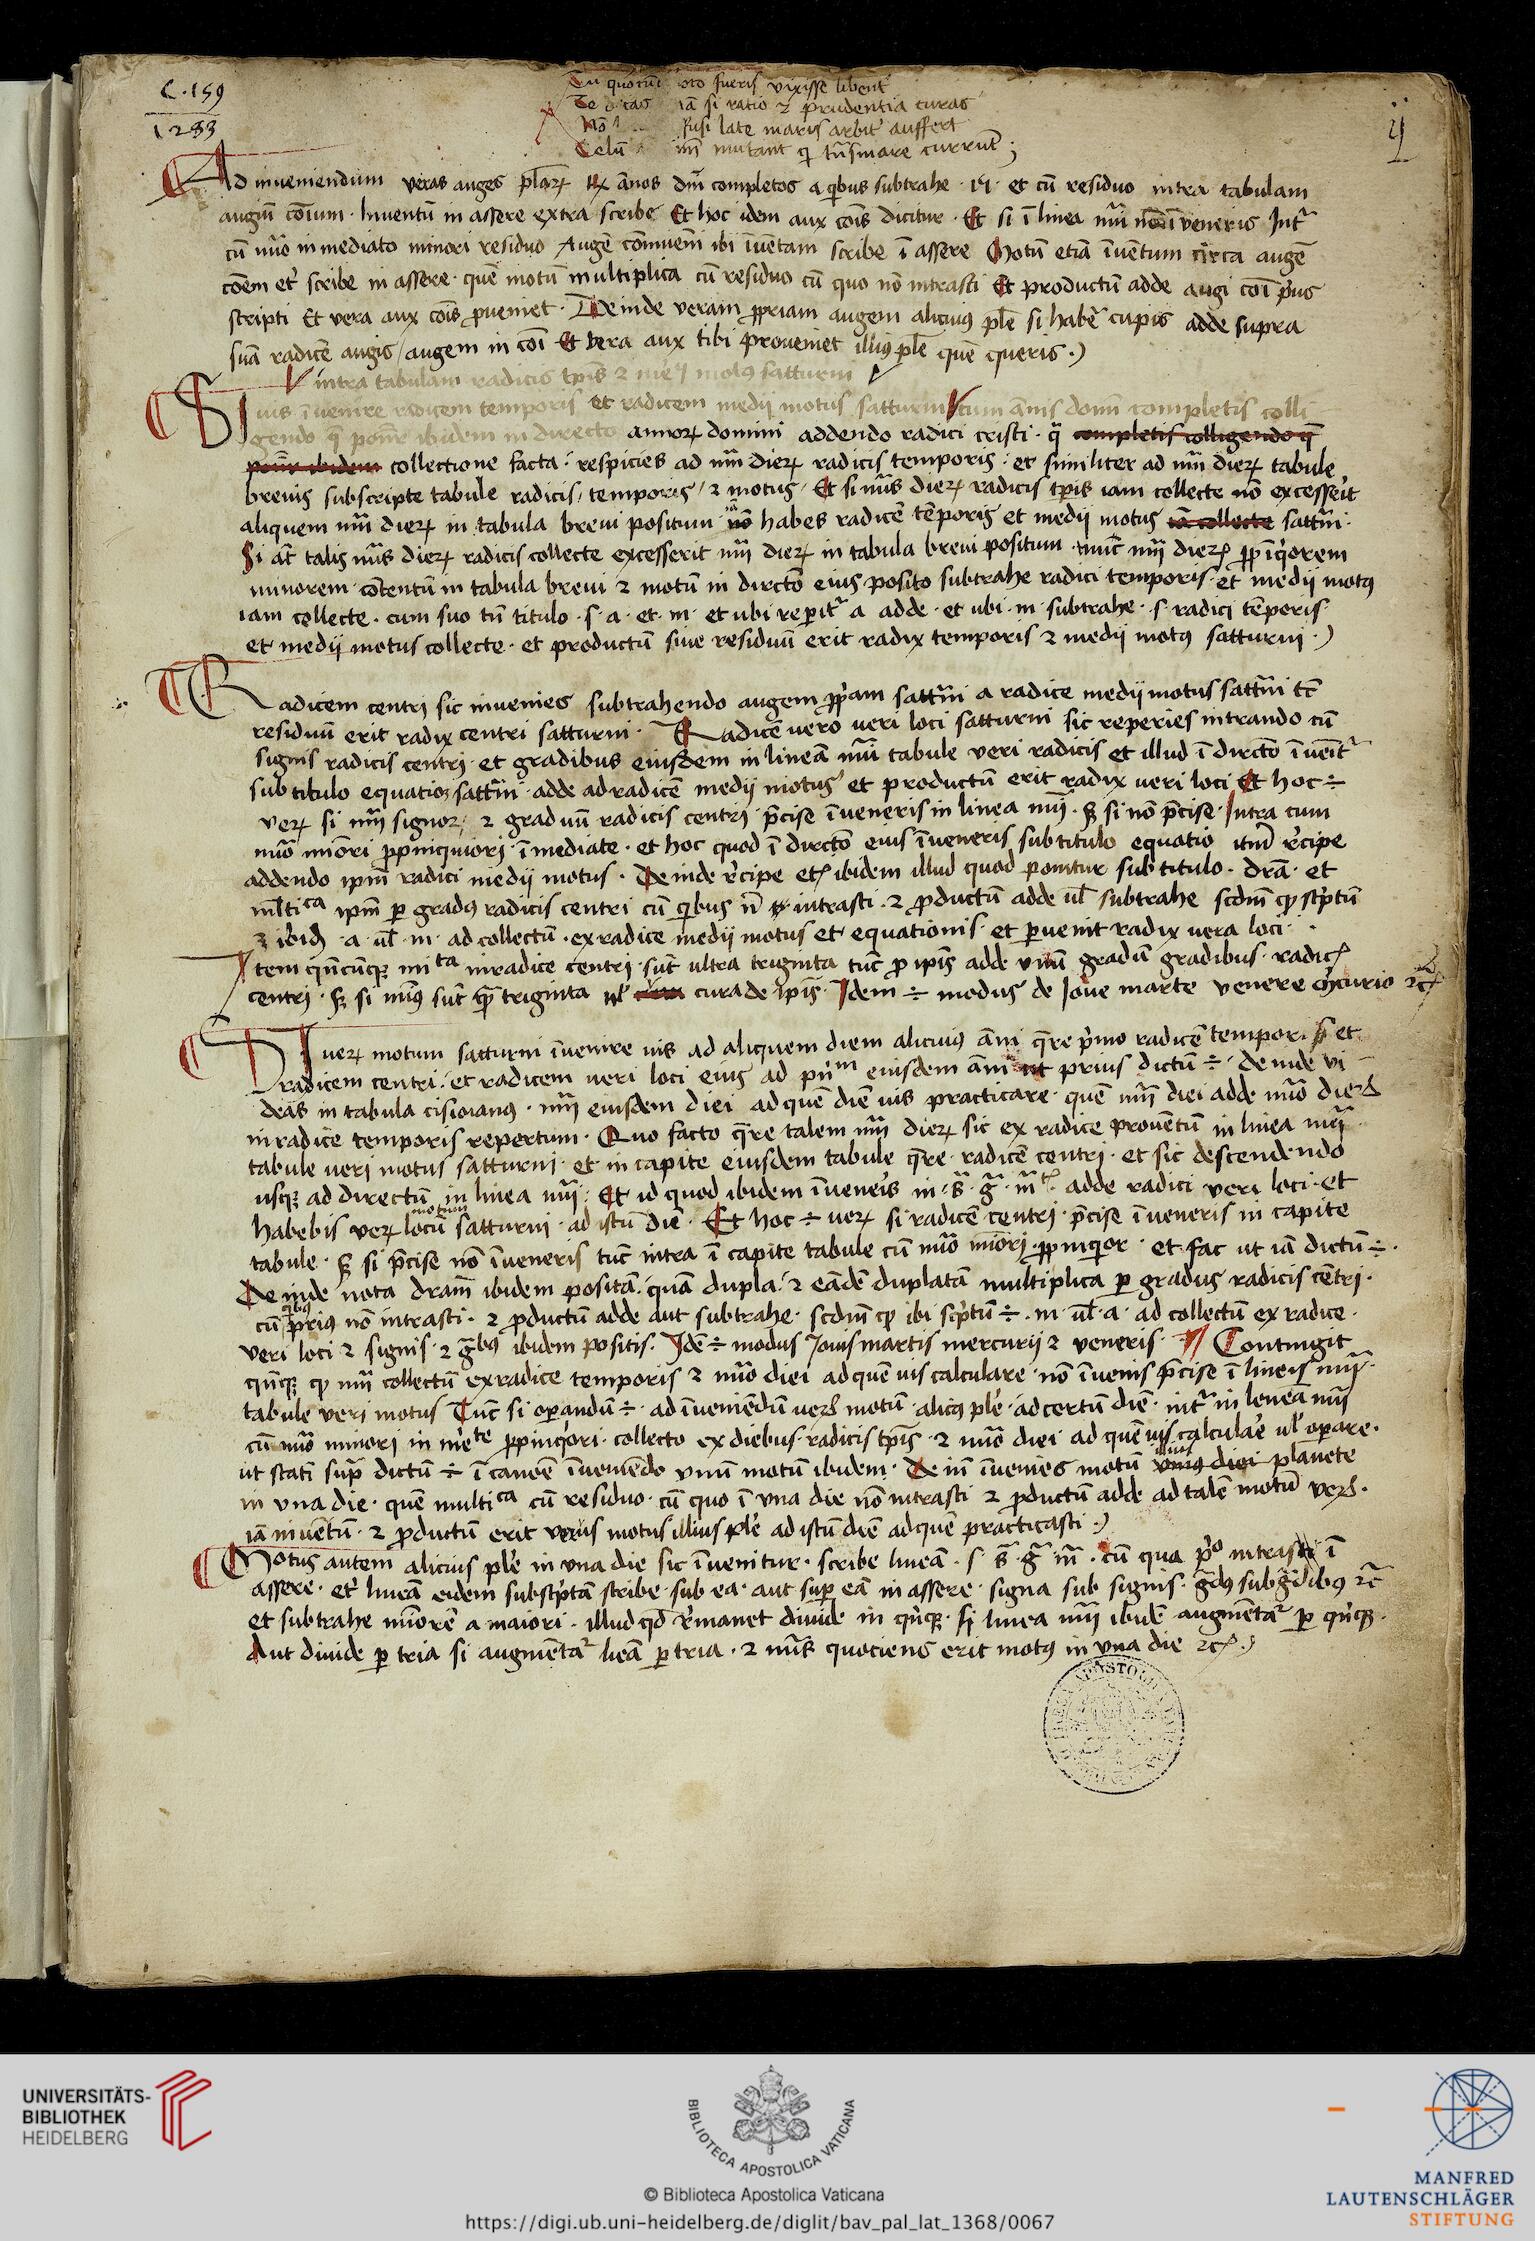 C. 159
1283
ij
Tu quocumque loco fueris vixisse libenter
Te dicas nam si ratio et prudentia curas
Non fusi late maris arbiter auffert
Celum mutant qui transmare currunt ;
Ad inveniendum veras auges pl̄arꝝ Rx ānos dm̄ completos a qibus subtrahe · et cū residuo intra tabulam
augiū cōium · Inventū in assere extra scribe Et hoc idem aux cōis dicitur · Et si ī linea nūi nō īveneris Intᷓ
cū nūo inmediato minori residuo Augē cōmuem̄ ibi īvētam scribe ī assere Motū etiā īvētum circa augē
cōem et scribe in assere · quē motū multiplica cū residuo cū quo nō intrasti Et productū adde augi cōi prius
scripti Et vera aux cōis proueniet · Deinde veram propriam augem alicuius ple si habē cupis adde supra
suā radicē augis / augem in cōi Et vera aux tibi proueniet illius ple quē queris ·)
intra tabulam radicis tpis 2 medij motus satturni
Si uis īvenire radicem temporis et radicem medij motus satturni cum ānis domī completis colli
gendo qᷓ ponr̄ ibidem in directo annorꝝ domini addendo radici cristi · qᷓ completis colligendo qᷓ
ponr̄ ibidem collectione facta · respicies ad nūm dierꝝ radicis temporis · et similiter ad nūm dierꝝ tabule
breuis subscripte tabule radicis / temporis / 2 motus / Et si nūs dierꝝ radicis tpis iam collecte nō excesserit
aliquem nūm dierꝝ in tabula breui positum nō habes radicē tēporis et medij motus iā collecte satt̄ni ·
Si aūt talis nūs dierꝝ radicis collecte excesserit nūm dierꝝ in tabula breui positum · tunc nūm dierꝝ ꝓpīqiorem
minorem · cōtentū in tabula breui 2 motū in dirctō eius posito subtrahe radici temporis · et medij motus
iam collecte · cum suo tn̄ titulo · s · a · et · m · et ubi reperitᷓ a adde · et ubi · m · subtrahe · s radici tēporis
et medij motus collecte · et productū siue residuū erit radix temporis 2 medij motus satturni ·)
Radicem centri sic inuenies subtrahendo augem ꝓpriam satt̄ni a radice medij motus satt̄ni tc̄
residuū erit radix centri satturni · Radicē vero veri loci satturni sic reperies intrando cū
signis radicis centri et gradibus eiusdem in lineā nūi tabule veri radicis et illud ī dirctō īvēitᷓ
sub titulo equatio satt̄ni · adde ad radicē medij motus et productū erit radix veri loci Et hoc ÷
verꝝ si nūm signorꝝ 2 graduū radicis centri p̄cise īveneris in linea nūi · sꝫ si nō p̄cise · Intra cum
nūo mīori ꝓpinquiori īmediate · et hoc quod ī dirctō eius īveneris sub titulo equatio itm̄ recipe
addendo ipm̄ radici medij motus · Deinde recipe etꝫ ibidem illud quod ponitur sub titulo · drā · et
mlti ca ipm̄ per gradus radicis centri cū qibus n̄ intrasti · 2 productū adde ul̄ subtrahe scdm̄ qꝫ scriptū
ibidē · a · ul̄ · m · ad collectū · ex radice medij motus et equationis et peruenit radix vera loci ·
Item qn̄cūqꝫ mi ta in radice centri · sūt ultra triginta tūc pro ipis adde vnū gradū gradibus · radicꝭ
centri · sꝫ si mīs sūt qᷓ triginta ul̄ cura de ipis · Idem ÷ modus de Joue marte venere mercurio 2cꝭ
Si verꝝ motum satturni īvenire uis ad aliquem diem alicuius āni qᷓre prīmo radicē temporis et
radicem centri · et radicem veri loci eius ad pn̄m eiusdem āni ut prius dictū ÷ · deinde vi
deas in tabula cisioianus · nūm eiusdem diei ad quē diē uis practicare · quē nūm diei adde nūo dierꝝ
in radice temporis repertum · Quo facto qᷓre talem nūm dierꝝ sic ex radice prouētū in linea nūi
tabule veri motus satturni · et in capite eiusdem tabule qᷓre radicē centri · et sic descendendo
usqꝫ ad directū in linea nūi · Et id quod ibidem īveneīs in · s̄ · ḡ · m̄ · adde radici veri loci · et
habebis verꝝ locū motum satturni · ad istū diē · Et hoc ÷ verꝝ si radicē centri · p̄cise īveneris in capite
tabule · sꝫ si p̄cise nō īveneris tūc intra ī capite tabule cū nūo mīori ꝓpinqior · et fac ut iā dictū ÷ ·
Deinde nota dram̄ ibidem positā · quā dupla · 2 eādē duplatā multiplica per gradus radicis cētri ·
cū quibus prius nō intrasti · 2 productū adde aut subtrahe · scdm̄ qꝫ ibi scriptū ÷ · m · ul̄ · a · ad collectū ex radice ·
veri loci 2 signis · 2 gᷓbus ibidem positis · Idē ÷ modus Jouis martis mercurij 2 veneris · Contingit
qn̄qꝫ qꝫ nūm collectū ex radice temporis 2 nūo diei ad quē uis calculare · nō īvenis p̄cise ī lineis nūi ·
tabule veri motus Tūc si operandū ÷ · ad īveniēdū verꝝ motū · alicuius ple · ad certū diē · intᷓ in lineā nūi
cū nūo minori in mēte ꝓpinqiori · collecto ex diebus radicis tpis · 2 nūo diei ad quē uis calculare ul̄ operare ·
ut statī suprᷓ dictū ÷ ī canōe īveniēdo vnū motū ibidem · Dein̄ īvenies motū vnius diei planete
in vna die · quē multi ca cū residuo · cū quo ī vna die nō intrasti 2 productū adde ad talē motū verꝝ ·
iā inuētū · 2 productū erit verus motus illius ple ad istū diē ad quē practicasti ·)
Motus autem alicuius ple in vna die sic īvenitur · scribe lineā · s · s̄ · ḡ · m̄ · cū qua p̄o intrasti ī
assere · et lineā eidem subscriptā scribe · sub ea · aut super eā in assere · signa sub signis · gᷓdus sub gᷓdibus 2c̄
et subtrahe mīorē a maiori · illud qd̄ remanet diuide in qīqꝫ · si linea nūi ibidē augmētaᷓ per qīqꝫ ·
Aut diuide per tria si augmētaᷓ lieā per tria · 2 nūs quociens erit motus in vna die 2cꝭ ·)
UNIVERSITÄTS-
BIBLIOTHEK
HEIDELBERG
BIBLIOTECA APOSTOLICA VATICANA
© Biblioteca Apostolica Vaticana
https://digi.ub.uni-heidelberg.de/diglit/bav_pal_lat_1368/0067
MANFRED
LAUTENSCHLÄGER
STIFTUNG